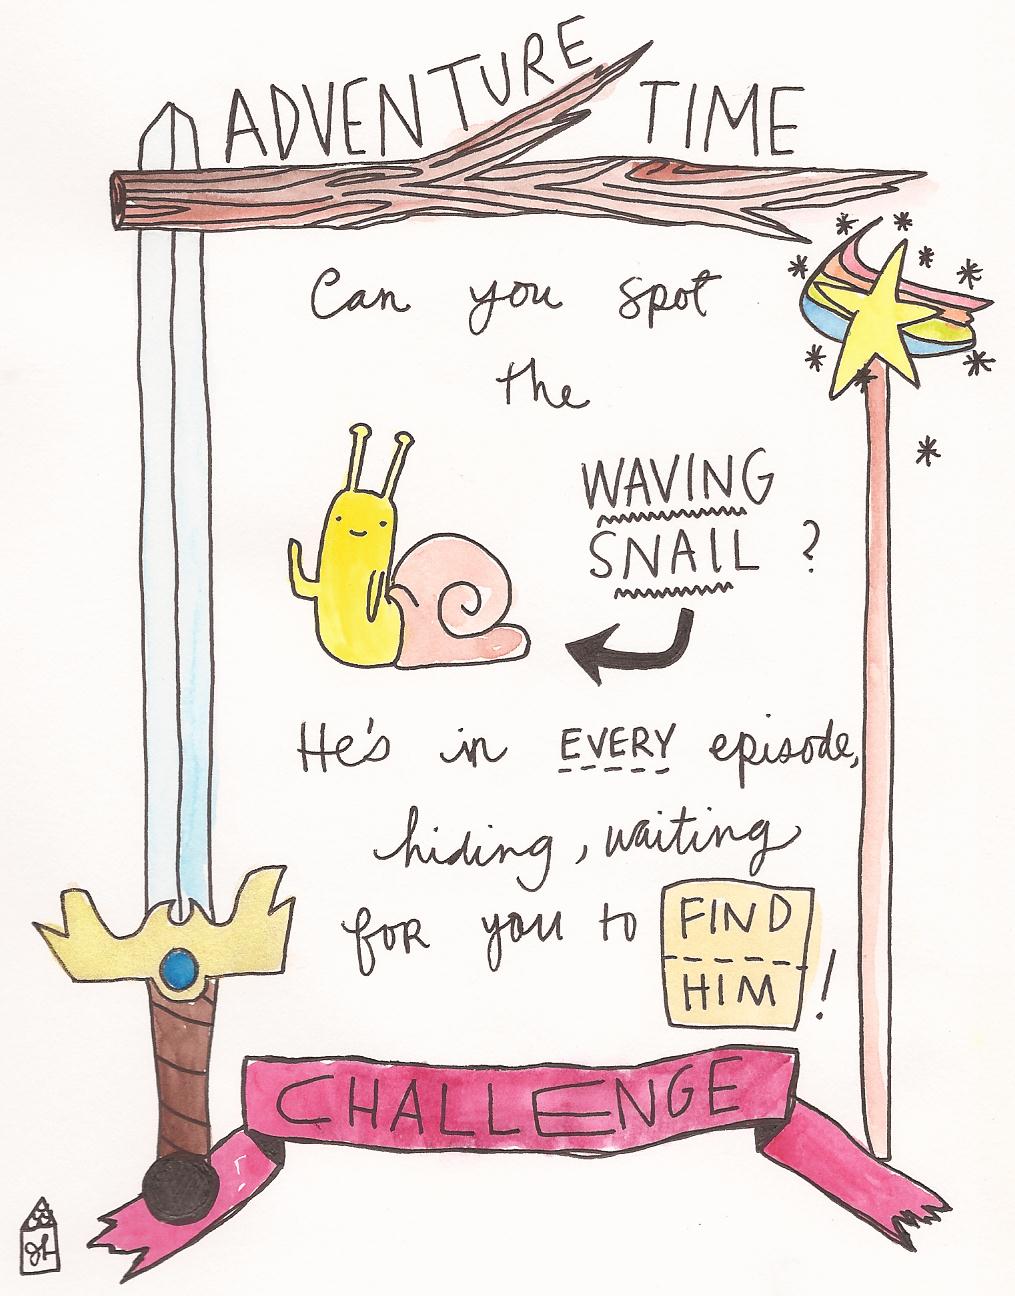 ADVENTURE TIME
Can you spot
the
WAVING
SNAIL ?
He's in EVERY episode,
hiding, waiting
for you to FIND
HIM!
CHALLENGE